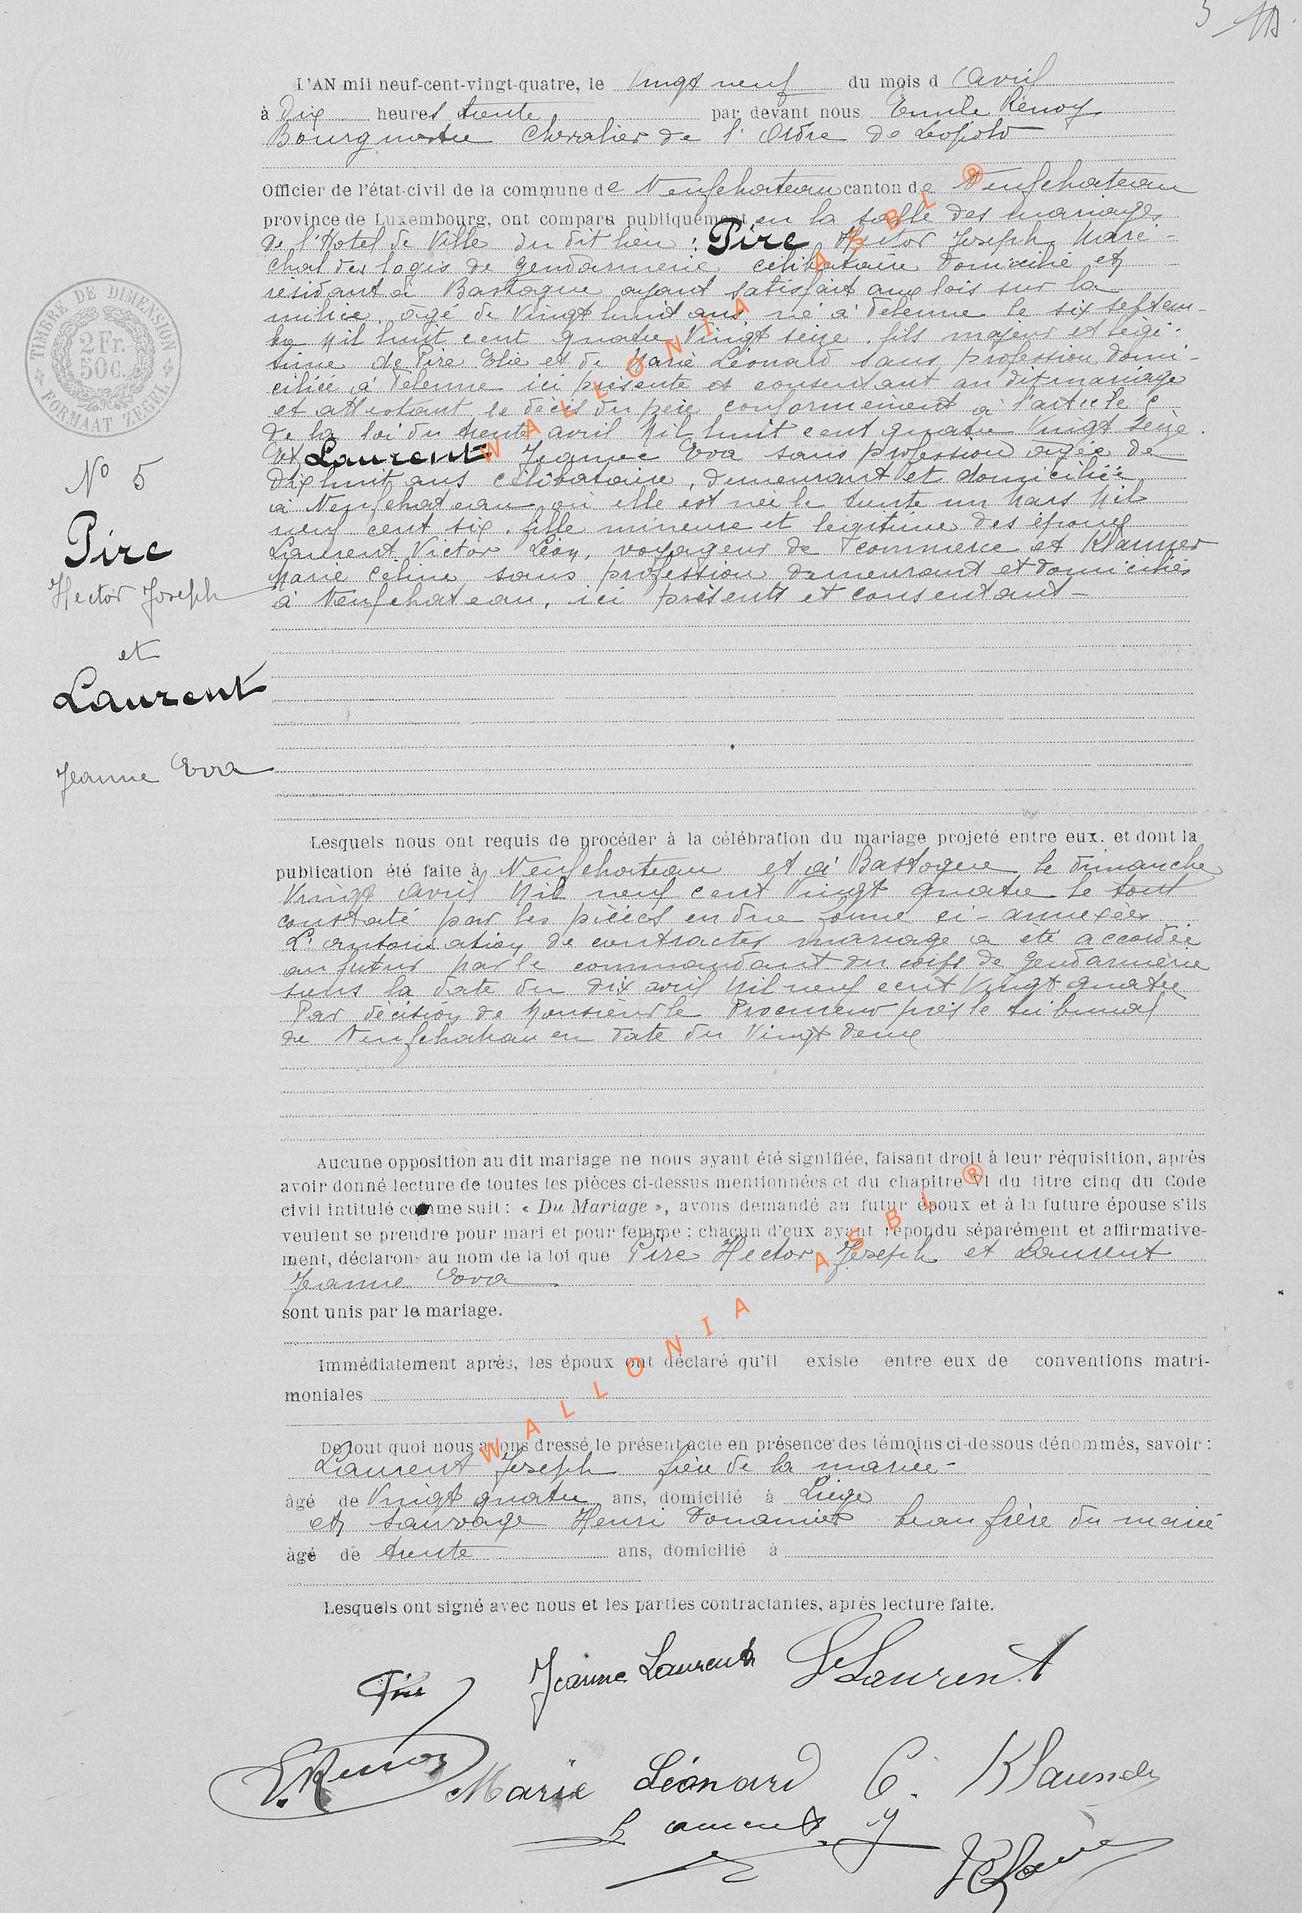 L'AN mil neuf-cent-vingt-quatre, le Vingt neuf du mois d'avril
à Dix heures trente par devant nous Emile Renoy
Bourgmestre Chevalier de l'Ordre de Léopold
Officier de l'état-civil de la commune de Neufchateau canton de Neufchateau
province de Luxembourg, ont comparu publiquement en la salle des mariages
de l'Hotel de Ville du dit lieu : Pire Hector Joseph Maré-
chal des logis de gendarmerie célibataire domicilié et
résidant à Bastogne ayant satisfait aux lois sur la
milice, agé de Vingt huit ans né à le six septem-
bre Mil huit cent quatre Vingt seize, fils majeur et légi-
time de Pire Elie et de Marie Léonard sans profession domi-
ciliée à ici présente et consentant au dit mariage
et attestant le décès du père conformément à l'article
de la loi du trente avril Mil huit cent quatre Vingt seize.
Et Laurent Jeanne Eva sans profession agée de
dix huit ans célibataire, demeurant et domiciliée
à Neufchateau où elle est née le trente un Mars Mil
neuf cent six, fille mineure et légitime des époux
Laurent Victor Léon, voyageur de commerce et Klauner
Marie Céline sans profession demeurant et domiciliés
à Neufchateau, ici présents et consentant -
TIMBRE DE DIMENSION
2 Fr.
50 C.
FORMAAT ZEGEL
N° 5
Pire
Hector Joseph
et
Laurent
Jeanne Eva
Lesquels nous ont requis de procéder à la célébration du mariage projeté entre eux. et dont la
publication été faite à Neufchateau et à Bastogne le dimanche
Vingt avril Mil neuf cent Vingt quatre le tout
constaté par les pièces en due forme ci-annexées
L'autorisation de contracter mariage a été accordée
au futur par le commandant du corps de gendarmerie
sous la date du dix avril Mil neuf cent Vingt quatre
Par décision de Monsieur le Procureur près le tribunal
de Neufchateau en date du Vingt deux
Aucune opposition au dit mariage ne nous ayant été signifiée, faisant droit à leur réquisition, après
avoir donné lecture de toutes les pièces ci-dessus mentionnées et du chapitre VI du titre cinq du Code
civil intitulé comme suit : « Du Mariage », avons demandé au futur époux et à la future épouse s'ils
veulent se prendre pour mari et pour femme : chacun d'eux ayant répondu séparément et affirmative-
ment, déclarons au nom de la loi que Pire Hector Joseph et Laurent
Jeanne Eva
sont unis par le mariage.
Immédiatement après, les époux ont déclaré qu'il existe entre eux de conventions matri-
moniales
De tout quoi nous avons dressé le présent acte en présence des témoins ci-dessous dénommés, savoir :
Laurent Joseph frère de la mariée -
âgé de Vingt quatre ans, domicilié à Liège
et Sauvage Henri Douanier beau frère du marié
âgé de trente ans, domicilié à
Lesquels ont signé avec nous et les parties contractantes, après lecture faite.
Pire Jeanne Laurent Laurent
E. Renoy Marie Léonard C. Klauner
Laurent. J
WALLONIA ASBL ®
WALLONIA ASBL ®